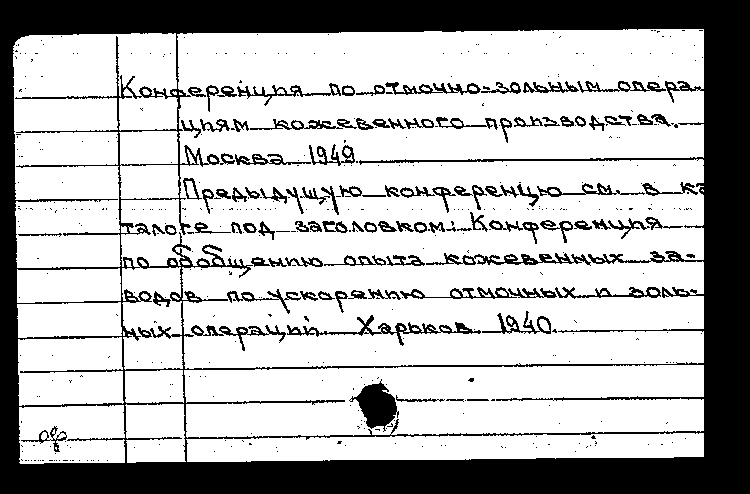 Конференция по отмочно-зольным опера-
циям кожевенного производства.
Москва 1949.
Предыдущую конференцию см. в ка
талоге под заголовком: Конференция
по обобщению опыта кожевенных за-
водов по ускорению отмочных и золь-
ных операций. Харьков. 1940.